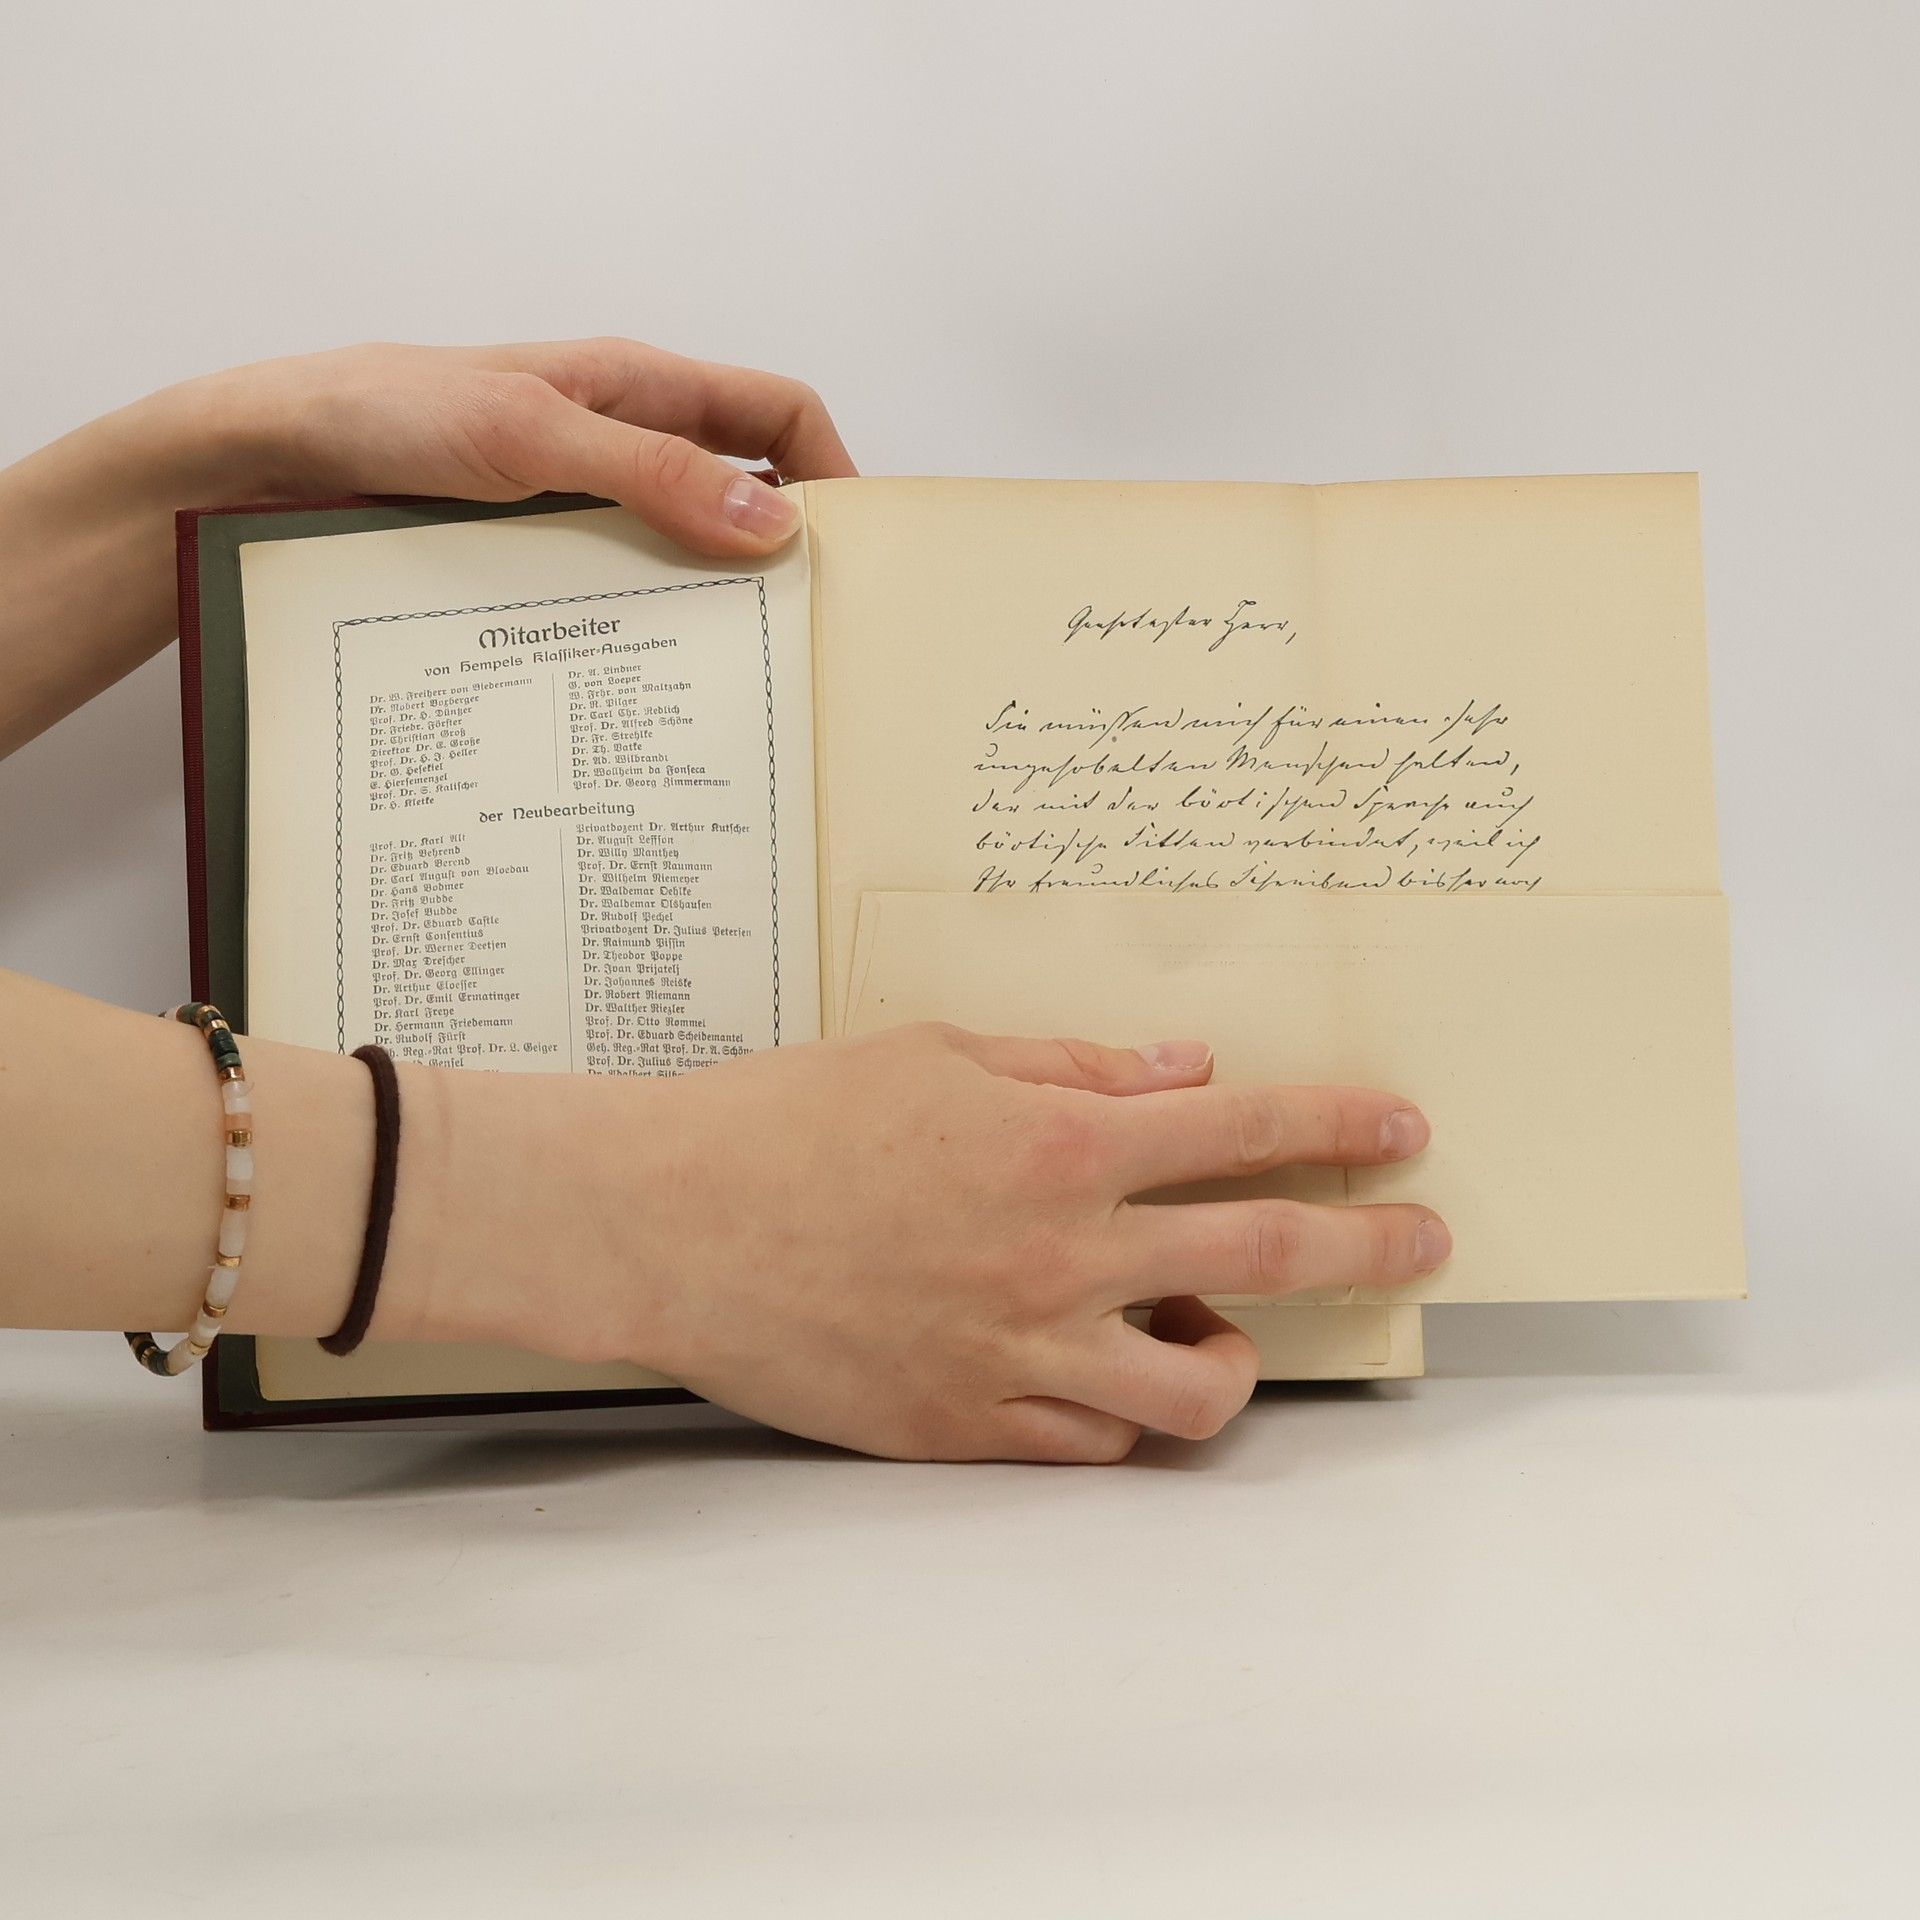 Mitarbeiter
von Hempels Klassiker-Ausgaben
Dr. W. Freiherr von Biedermann
Dr. Robert Boxberger
Prof. Dr. H. Düntzer
Dr. Friedr. Förster
Dr. Christian Groß
Direktor Dr. E. Große
Prof. Dr. H. J. Heller
Dr. G. Hesekiel
E. Hiersemenzel
Prof. Dr. S. Kalischer
Dr. H. Kletke
Dr. A. Lindner
G. von Loeper
W. Frhr. von Maltzahn
Dr. R. Pilger
Dr. Carl Chr. Redlich
Prof. Dr. Alfred Schöne
Dr. Fr. Strehlke
Dr. Th. Vatke
Dr. Ad. Wilbrandt
Dr. Wollheim da Fonseca
Prof. Dr. Georg Zimmermann
der Neubearbeitung
Prof. Dr. Karl Alt
Dr. Fritz Behrend
Dr. Eduard Berend
Dr. Carl August von Bloedau
Dr. Hans Bodmer
Dr. Fritz Budde
Dr. Josef Budde
Prof. Dr. Eduard Castle
Dr. Ernst Consentius
Prof. Dr. Werner Deetjen
Dr. Max Drescher
Prof. Dr. Georg Ellinger
Dr. Arthur Eloesser
Prof. Dr. Emil Ermatinger
Dr. Karl Freye
Dr. Hermann Friedemann
Dr. Rudolf Fürst
Reg.-Rat Prof. Dr. L. Geiger
Gensel
Privatdozent Dr. Arthur Kutscher
Dr. August Leffson
Dr. Willy Manthey
Prof. Dr. Ernst Naumann
Dr. Wilhelm Niemeyer
Dr. Waldemar Oehlke
Dr. Waldemar Olshausen
Dr. Rudolf Pechel
Privatdozent Dr. Julius Petersen
Dr. Raimund Pissin
Dr. Theodor Poppe
Dr. Ivan Prijatelj
Dr. Johannes Reiske
Dr. Robert Riemann
Dr. Walther Riezler
Prof. Dr. Otto Rommel
Prof. Dr. Eduard Scheidemantel
Geh. Reg.-Rat Prof. Dr. A. Schöne
Prof. Dr. Julius Schwering
Dr. Adalbert
Geehrtester Herr,
Sie müssen mich für einen sehr
ungehobelten Menschen halten,
der mit der böotischen Sprache auch
böotische Sitten verbindet, weil ich
Ihr freundliches Schreiben bisher noch